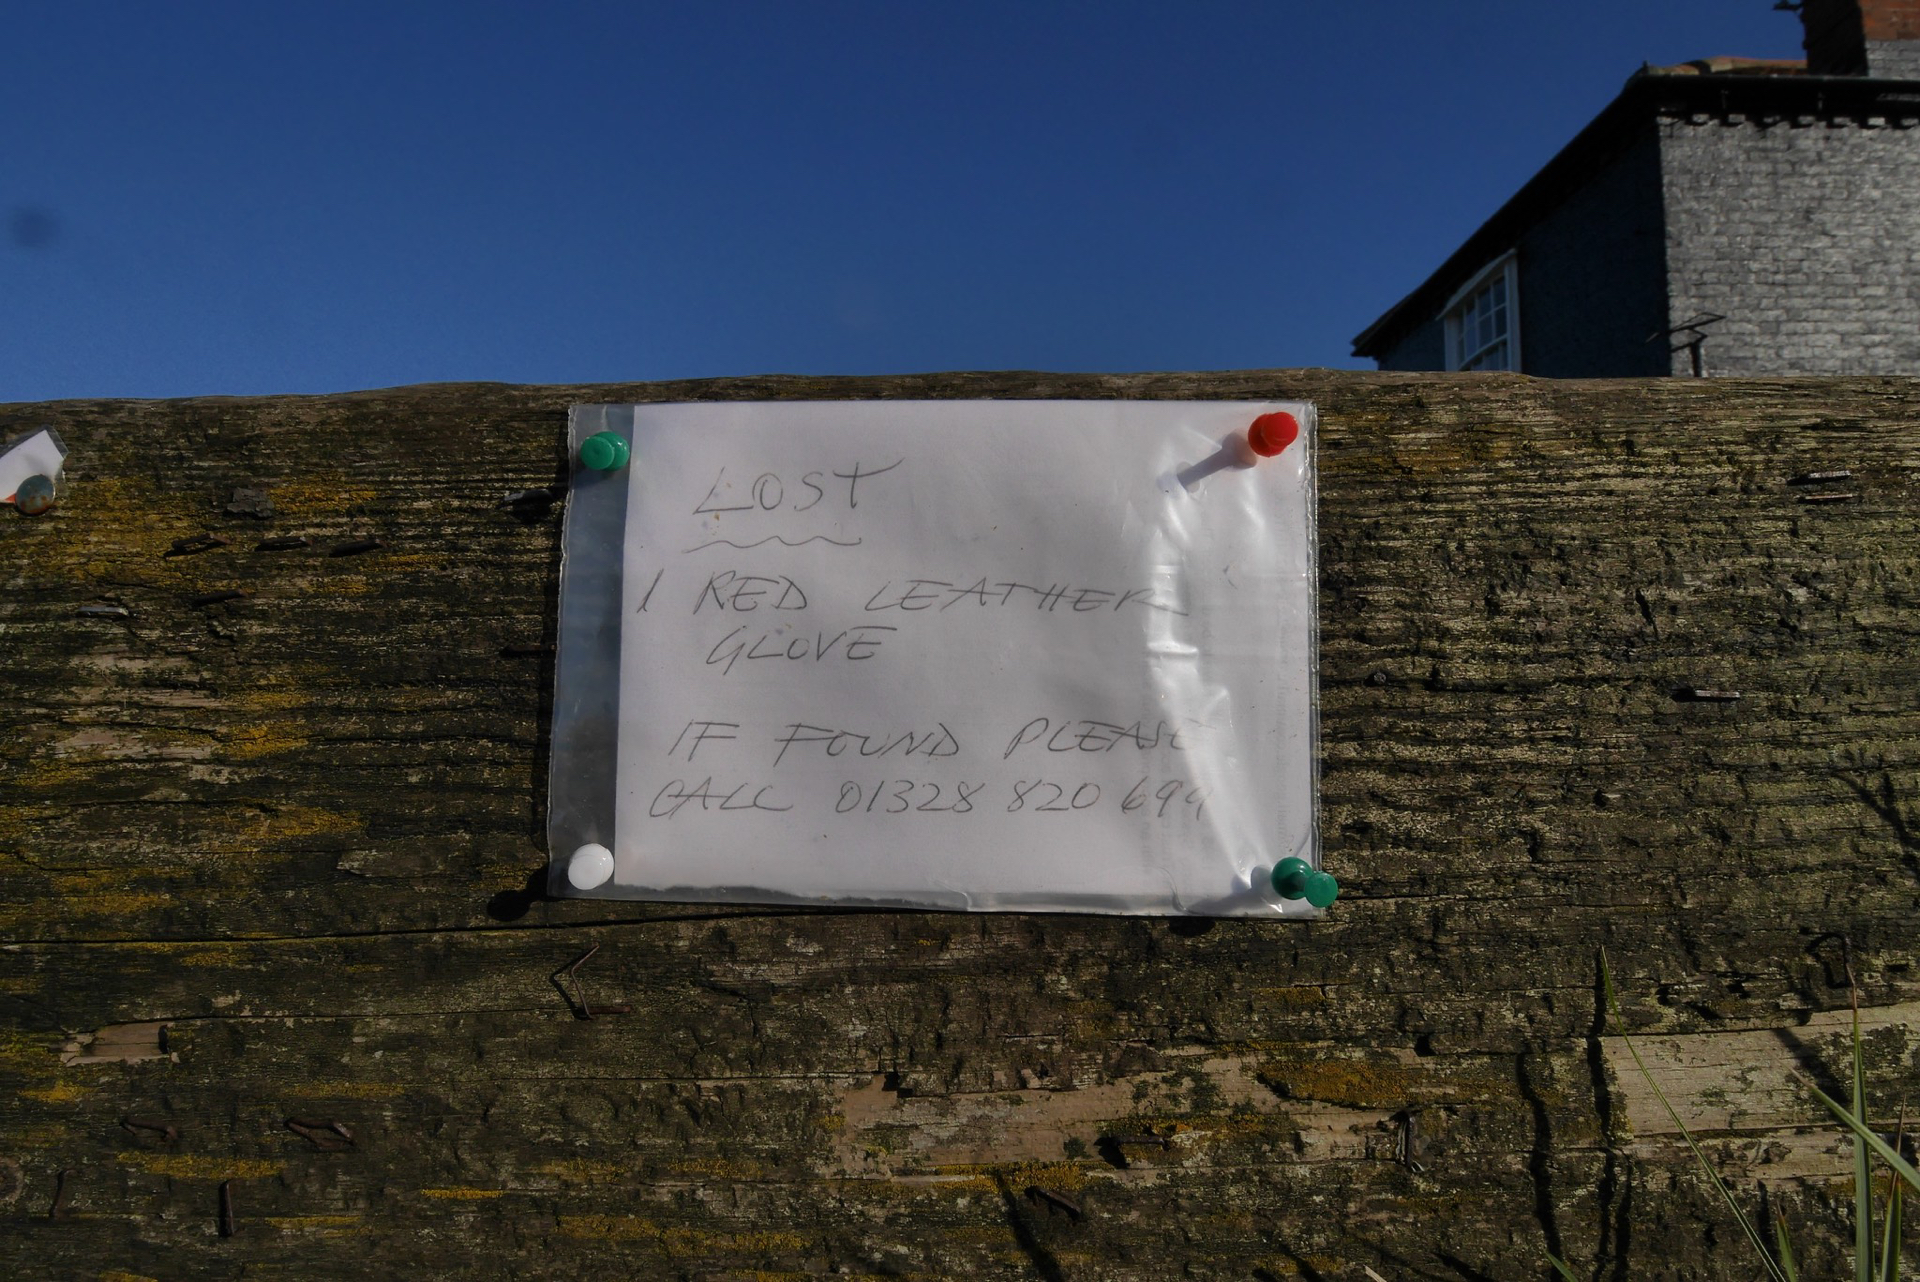 LOST
1 RED LEATHER
GLOVE
IF FOUND PLEASE
CALL 01328 820 699